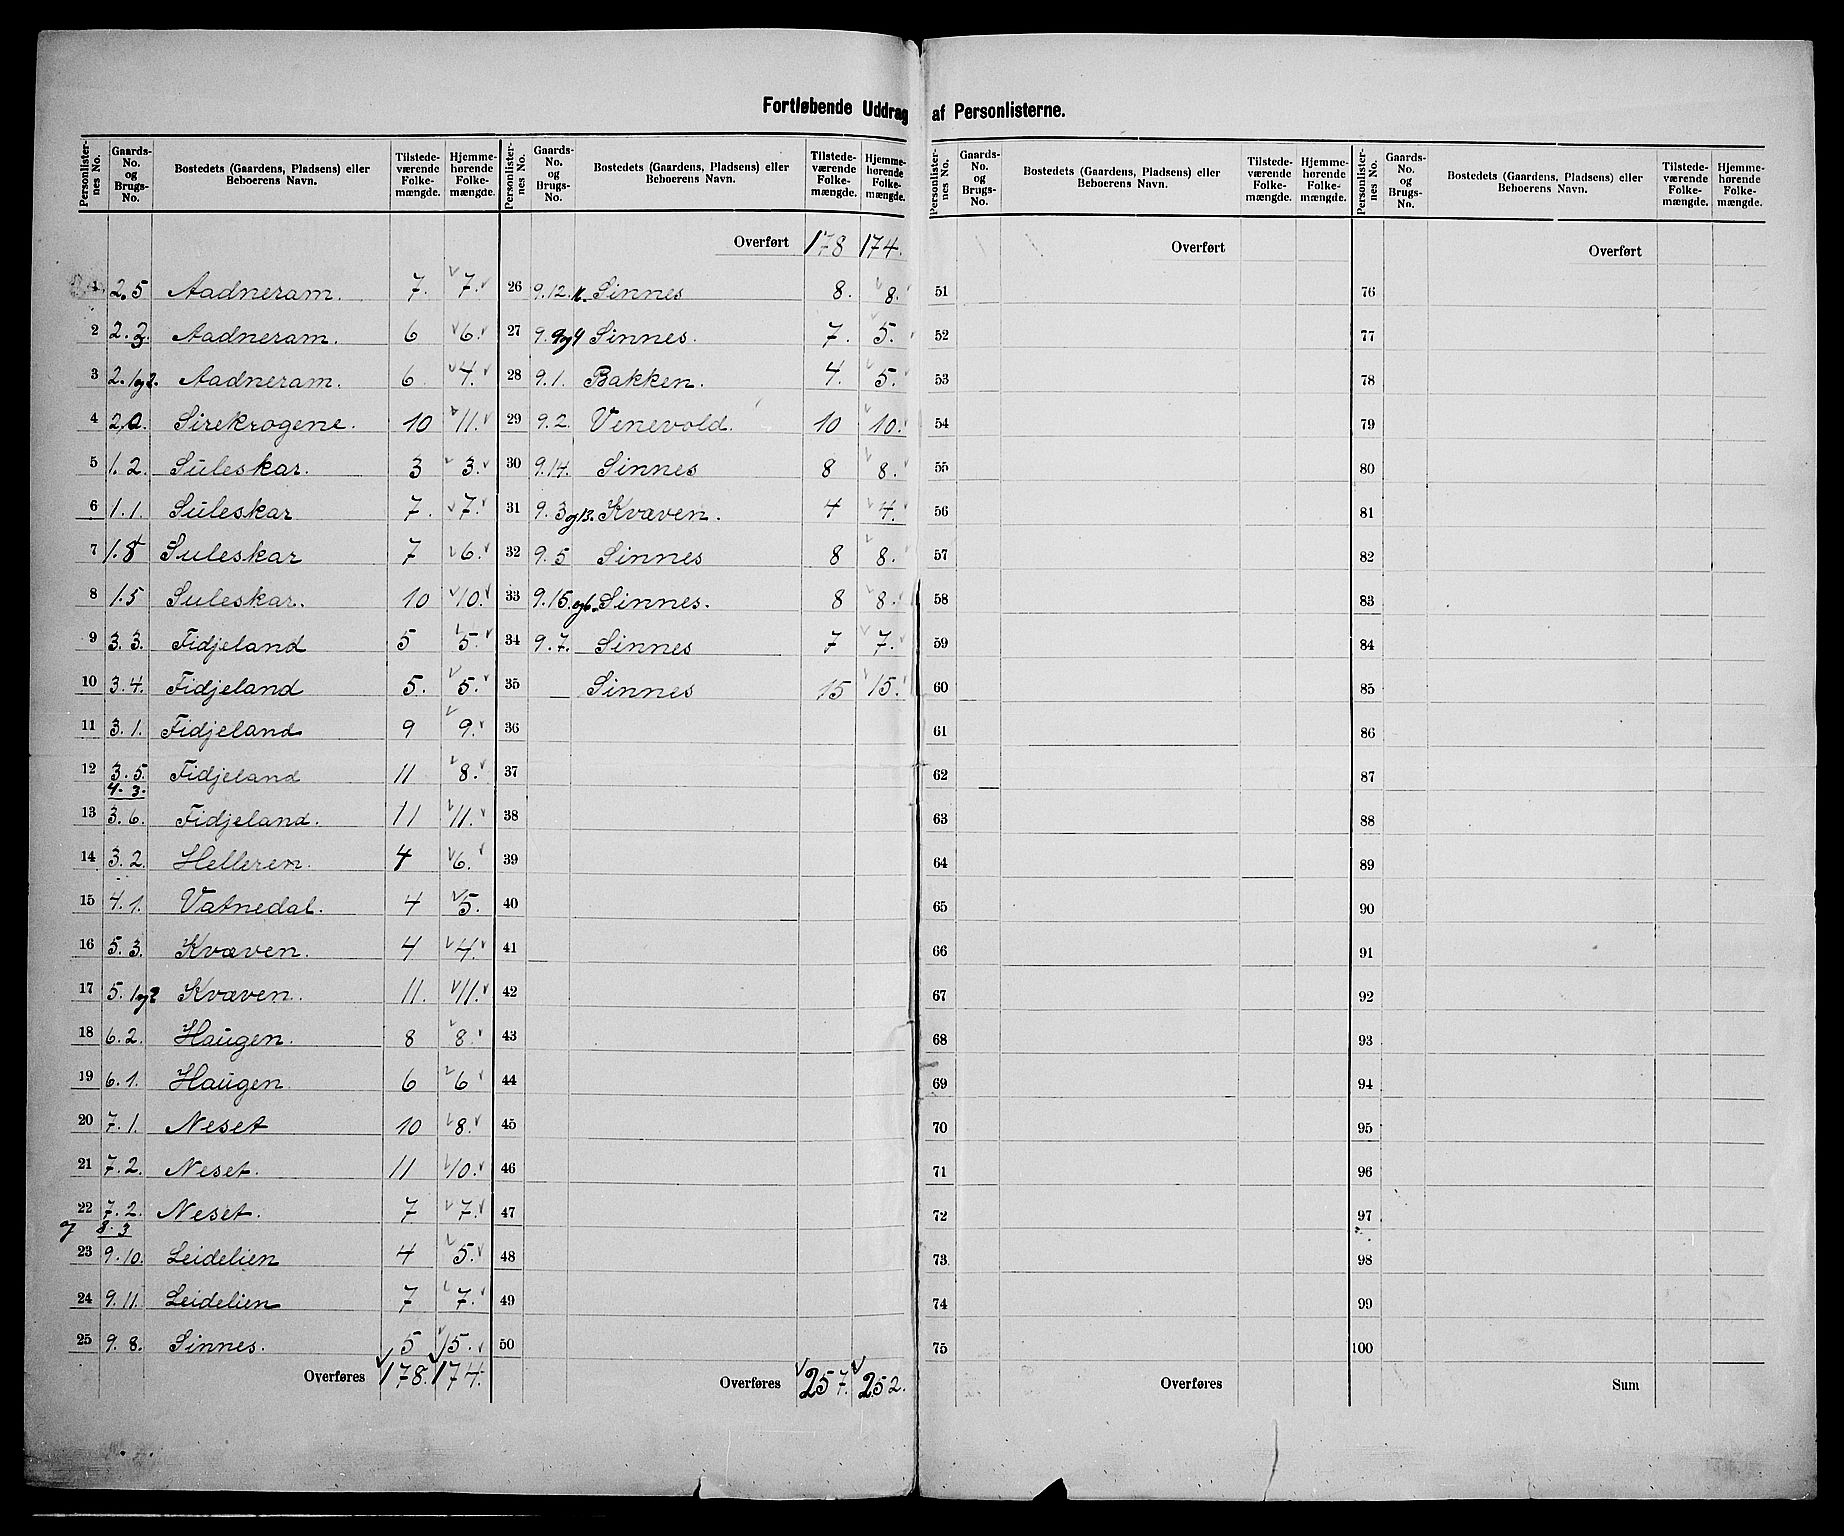 Fortløbende Uddrag af Personlisterne.
Personlisternes No. | Gaards-No. og Brugs-No. | Bostedets (Gaardens, Pladsens) eller Beboerens Navn. | Tilstedeværende Folkemængde. | Hjemmehørende Folkemængde.
1 2.5 Aadneram. 7. 7.
2 2.3. Aadneram. 6 6.
3 2.1og2. Aadneram. 6. 4.
4 2. Sirekrogene. 10 11.
5 1.2. Suleskar. 3 3.
6 1.1. Suleskar 7. 7.
7 1.8 Suleskar 7 6.
8 1.5 Suleskar. 10 10.
9 3.3. Fidjeland 5 5.
10 3.4. Fidjeland 5. 5.
11 3.1. Fidjeland 9 9.
12 3.5. Fidjeland 11 8.
4.3.
13 3.6. Fidjeland. 11 11.
14 3.2. Helleren. 4 6.
15 4.1. Vatnedal. 4 5.
16 5.3. Kvæven. 4 4.
17 5.1og2 Kvæven. 11. 11.
18 6.2. Haugen. 8 8.
19 6.1. Haugen. 6 6
20 7.1. Neset 10 8.
21 7.2. Neset. 11 10.
22 7.2. Neset. 7 7.
og 8.3
23 9.10. Leidelien 4 5.
24 9.11. Leidelien 7 7.
25 9.8. Sinnes. 5 5.
Overføres 178. 174.
Personlisternes No. | Gaards-No. og Brugs-No. | Bostedets (Gaardens, Pladsens) eller Beboerens Navn. | Tilstedeværende Folkemængde. | Hjemmehørende Folkemængde.
Overført 178 174.
26 9.12. Sinnes 8. 8.
27 9.9og4 Sinnes. 7. 5.
28 9.1. Bakken. 4. 5.
29 9.2. Venevold. 10 10.
30 9.14. Sinnes 8 8.
31 9.3og13. Kvæven. 4 4.
32 9.5 Sinnes 8 8.
33 9.15.og6. Sinnes. 8 8.
34 9.7. Sinnes 7 7.
35 Sinnes 15 15.
36
37
38
39
40
41
42
43
44
45
46
47
48
49
50
Overføres 257. 252.
Personlisternes No. | Gaards-No. og Brugs-No. | Bostedets (Gaardens, Pladsens) eller Beboerens Navn. | Tilstedeværende Folkemængde. | Hjemmehørende Folkemængde.
Overført
51
52
53
54
55
56
57
58
59
60
61
62
63
64
65
66
67
68
69
70
71
72
73
74
75
Overføres
Personlisternes No. | Gaards-No. og Brugs-No. | Bostedets (Gaardens, Pladsens) eller Beboerens Navn. | Tilstedeværende Folkemængde. | Hjemmehørende Folkemængde.
Overført
76
77
78
79
80
81
82
83
84
85
86
87
88
89
90
91
92
93
94
95
96
97
98
99
100
Sum